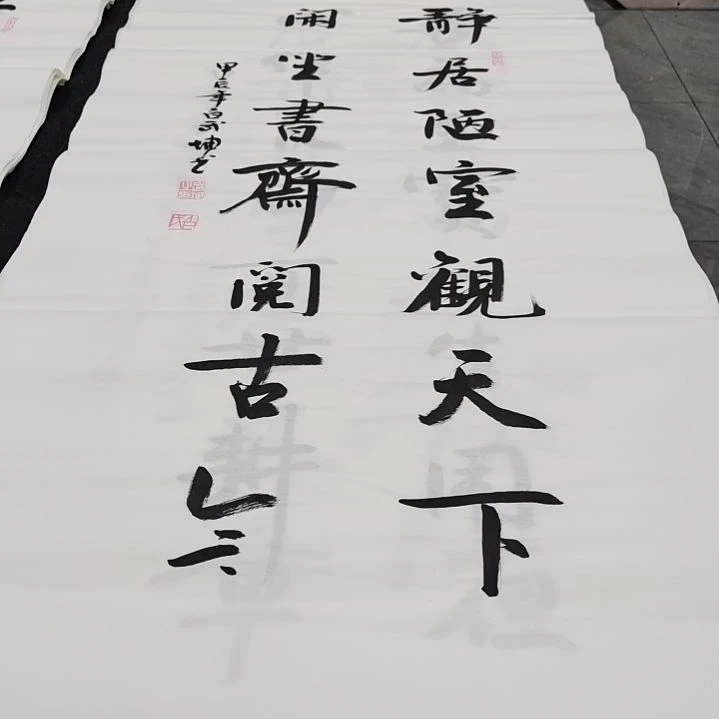 靜居陋室觀天下
閑坐書齋閱古今
甲辰年
坤书